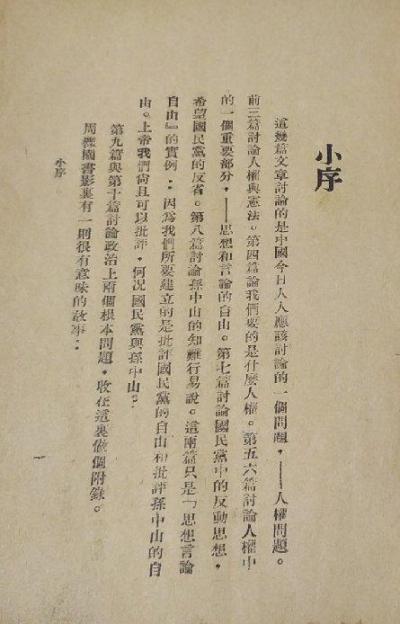 小序
這幾篇文章討論的是中國今日人人應該討論的一個問題，——人權問題。
前三篇討論人權與憲法。第四篇論我們要的是什麼人權。第五六篇討論人權中
的一個重要部分，——思想和言論的自由。第七篇討論國民黨中的反動思想，
希望國民黨的反省。第八篇討論孫中山的知難行易說。這兩篇只是「思想言論
自由」的實例：因為我們所要建立的是批評國民黨的自由和批評孫中山的自
由。上帝我們尚且可以批評，何況國民黨與孫中山？
第九篇與第十篇討論政治上兩個根本問題，收在這裏做個附錄。
周櫟園書影裏有一則很有意味的故事：
小序
一